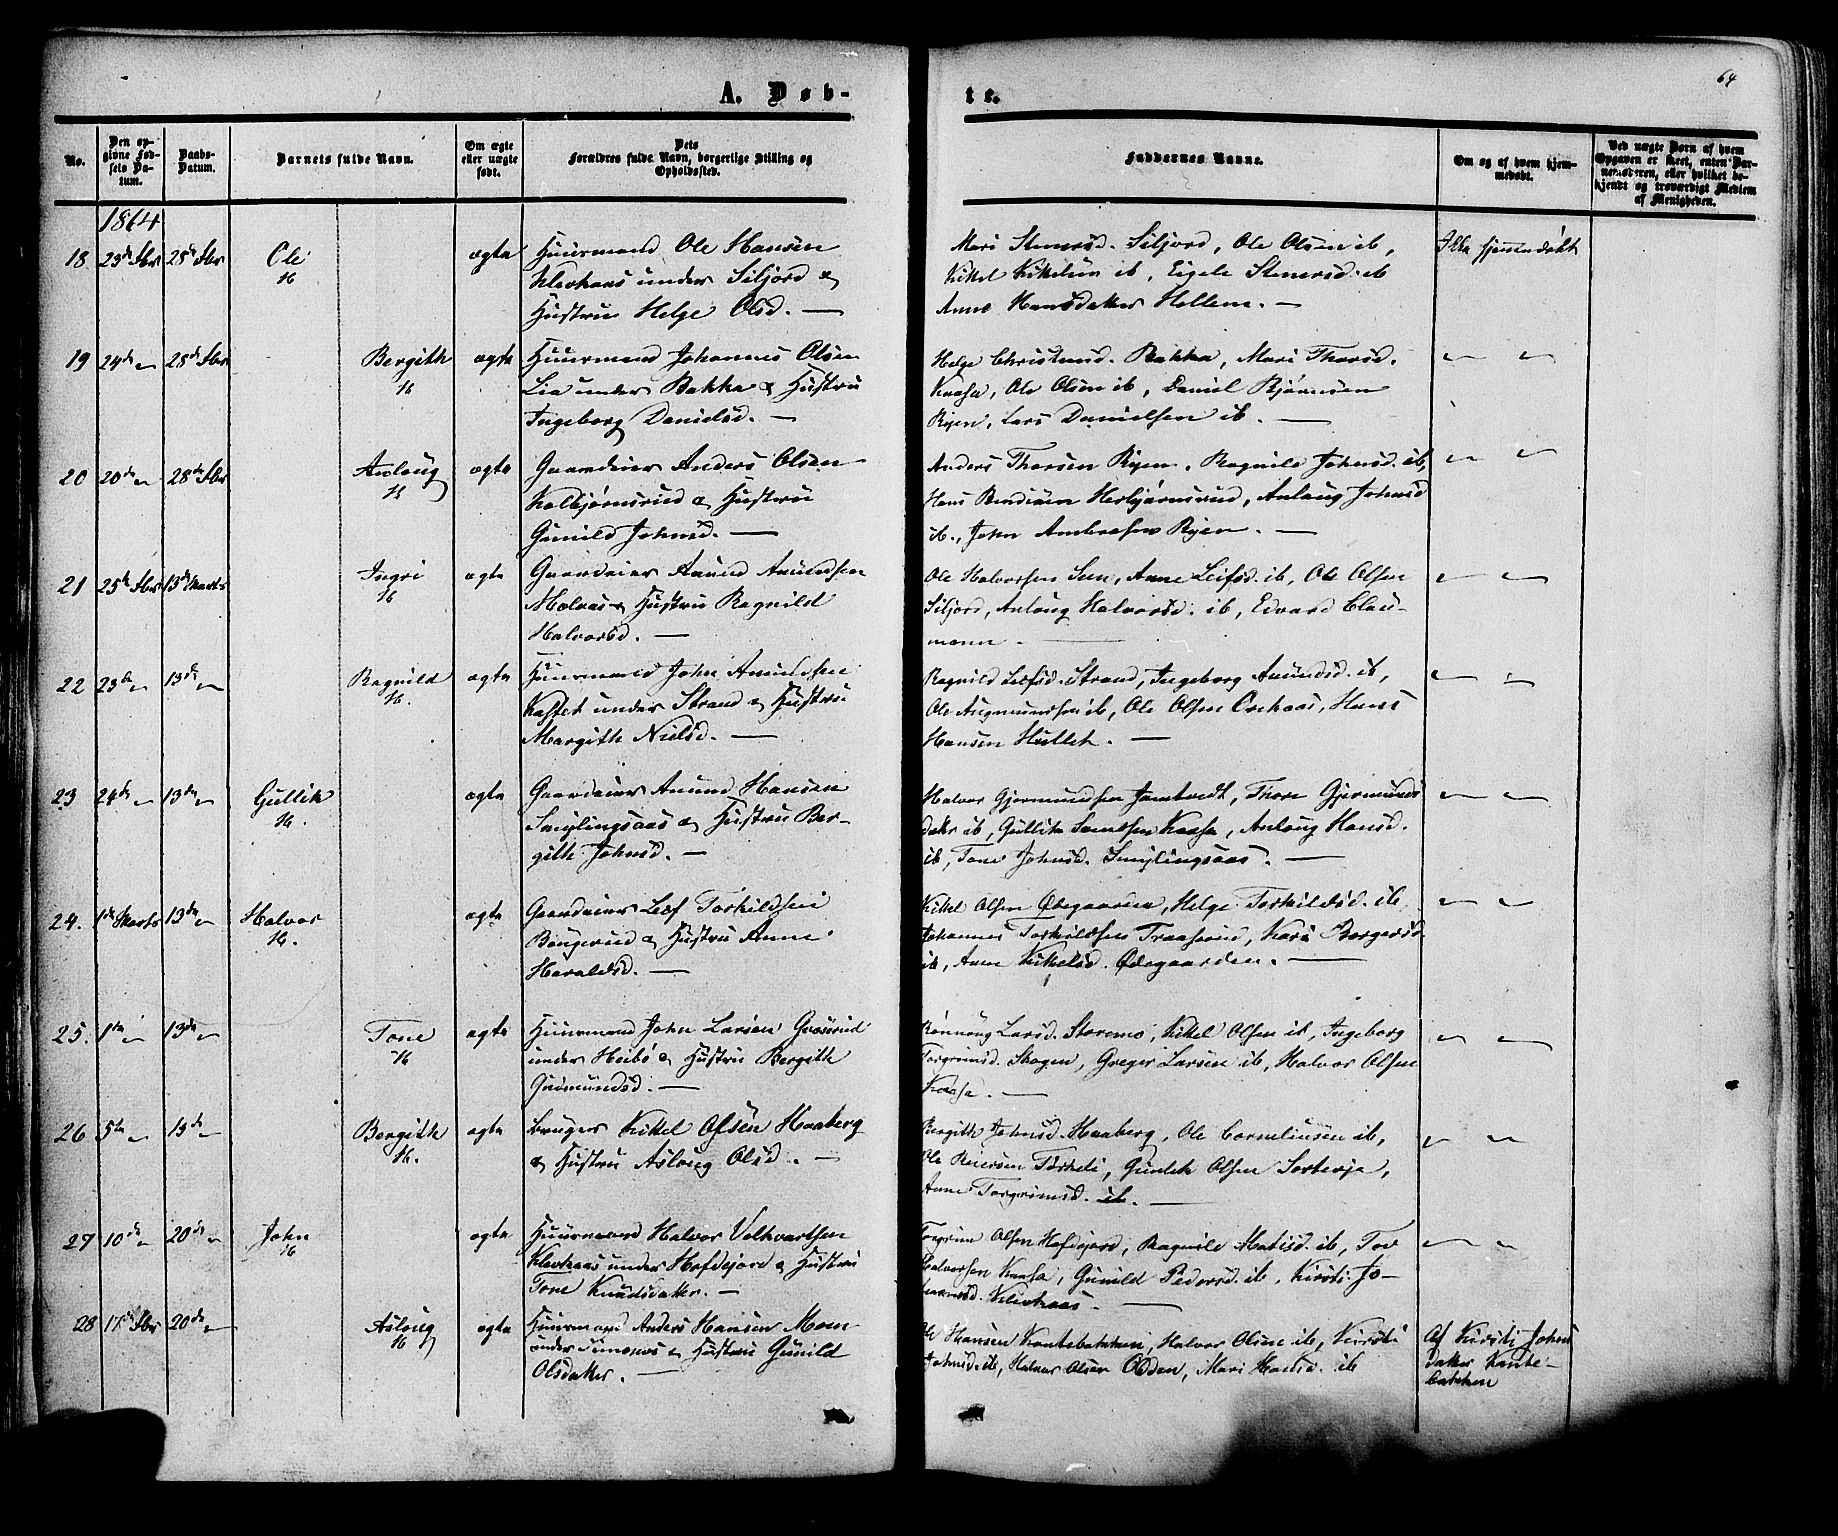 64
A. Døb-
te.
No.
Den opgivne Fødsels Datum.
Daabs-Datum.
Barnets fulde Navn.
Om ægte eller uægte født.
Dets Forældres fulde Navn, borgerlige Stilling og Opholdssted.
Faddernes Navne.
Om og af hvem hjemmedøbt.
Ved uægte Børn af hvem Opgaven er skeet, enten Barnemoderen, eller hvilket bekjendt og troværdigt Medlem af Menigheden.
1864
18 23de Fbr 28de Fbr Ole ægte Huusmand Ole Hansen
Klevhaas under Siljord &
Hustru Helge Olsd. —
Mari Stenersd. Siljord, Ole Olsen ib,
Kikel Kikelsen ib, Eigele Stenersd. ib
Anne Hansdatter Hellem. —
Ikke hjemmedøbt
19 24de 28de Fbr Bergith ægte Huusmand Johannes Olsen
Lia under Bakka & Hustru
Ingeborg Danielsd. —
Helge Christensd. Bakka, Mari Thorsd.
Kaasa, Ole Olsen ib, Daniel Bjørnsen
Ryen, Lars Danielsen ib. —
20 20de 28de Fbr Aslaug ægte Gaardeier Anders Olsen
Kolbjørnsrud & Hustru
Gunild Johnsd. —
Anders Thorsen Ryen, Ragnild Johnsd. ib,
Hans Herbjørnsrud, Aslaug Johnsd
ib., John Ambrosen Ryen. —
21 25de Fbr 13de Marts Ingri ægte Gaardeier Anund Anundsen
Molaas & Hustru Ragnild
Halvorsd. —
Ole Halvorsen Sem, Anne Leifsd. ib, Ole Olsen
Siljord, Aslaug Halvorsd. ib, Edvard Clau-
mann. —
22 23de 13de Ragnild ægte Huusmand John Anundsen
Kastet under Strand & Hustru
Margith Nielsd. —
Ragnild Leifsd. Strand, Ingeborg Anundsd. ib,
Ole Augmundsen ib, Ole Olsen, Hans
Hansen Hullek. —
23 24de 13de Gullik ægte Gaardeier Anund Hansen
Smylingsaas & Hustru Ber-
gith Johnsd. —
Halvor Gjermundsen Jamtvedt, Thore Gjermunds
datter ib, Gullik Kaasa, Aslaug Hansd.
ib, Tone Johnsd. Smylingsaas. —
24. 1de Marts 13de Halvor ægte Gaardeier Leif Torkildsen
Bingerud & Hustru Anne
Haraldsd. —
Kikel Olsen Ødegaarden, Helge Torkildsd. ib,
Johannes Torkildsen Traaserud, Kari Borgersd.
ib, Anne Kikelsd. Ødegaarden. —
25. 1de 13de Tone ægte Huusmand John Larsen Grøsrud
under Heibø & Hustru Bergith
Gudmundsd. —
Rønnaug Larsd. Storemo, Kikel Olsen ib, Ingeborg
Torgrimsd. Skogen, Greger Larsen ib, Halvor Olsen
Kaasa. —
26 5te 13de Bergith ægte Bruger Kikel Olsen Haaberg
& Hustru Aslaug Olsd. —
Bergith Johnsd. Haaberg, Ole Corneliussen ib,
Ole Reiersen, Gunlek Olsen,
Anne Torgrimsd. ib. —
27 10de 20de John ægte Huusmand Halvor Volkvartsen
Klevhaas under Hofdejord & Hustru
Tone Knudsdatter. —
Torgrim Olsen Hofdejord, Ragnild Matisd. ib, Tov
Halvorsen Kaasa, Gunild Pedersd. ib, Kirsti Jo-
Klevhaas. —
28 17de Fbr 20de Aslaug ægte Huusmand Anders Hansen Moen
under & Hustru Gunild
Olsdatter. —
Ole Hansen Kantebakken, Halvor Olsen ib, Kirsti
Johnsd. ib, Halvor Olsen Olden, Mari Hansd. ib
Af Kirsti Johns
datter Kante-
bakken